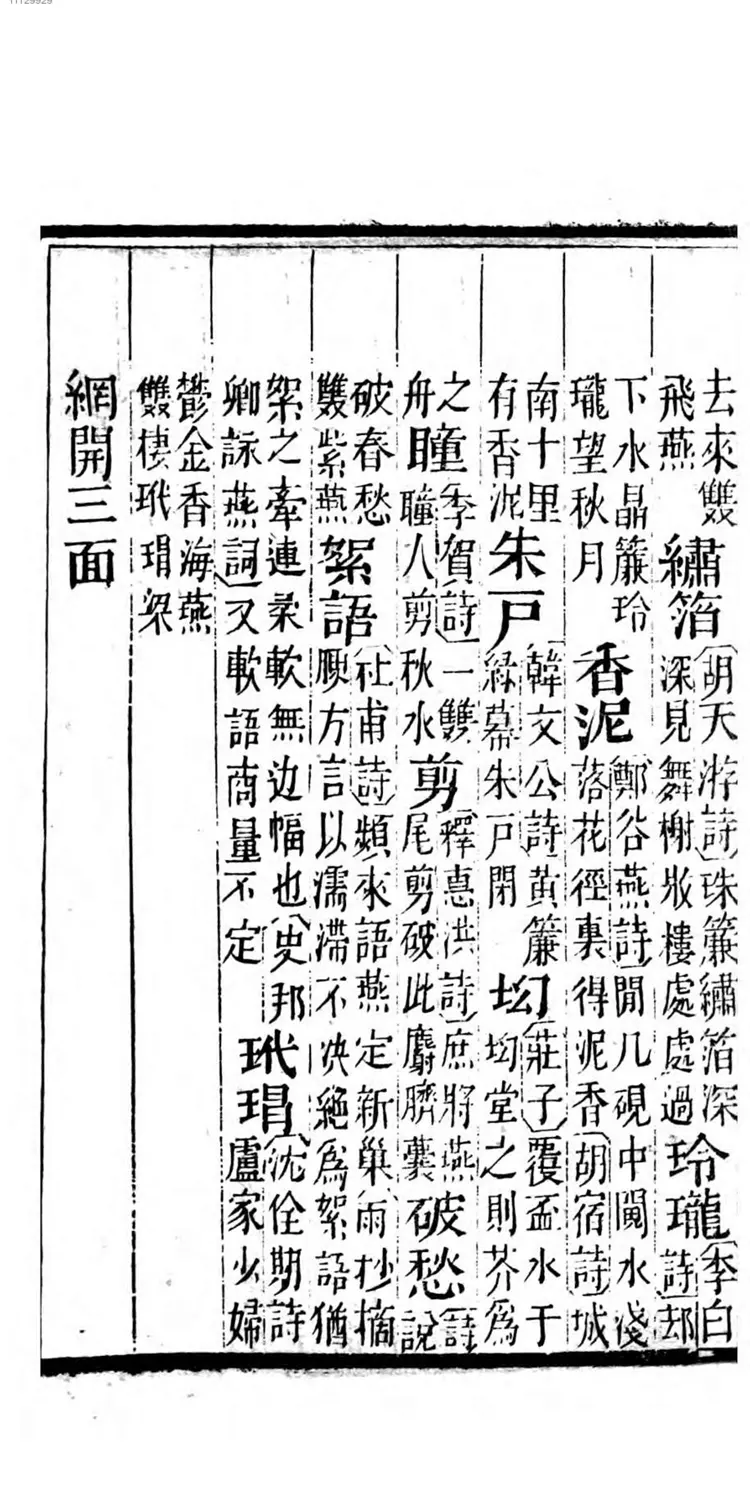 去來雙飛燕 繡箔〔胡天游詩〕珠簾繡箔深深見舞榭妝樓處處過 玲瓏〔李白詩〕却
下水晶簾玲瓏望秋月 香泥〔鄭谷燕詩〕閒几硯中闚水淺落花徑裏得泥香〔胡宿詩〕城
南十里有香泥 朱戶〔韓文公詩〕黃簾綠幕朱戶閑 坳〔莊子〕覆盃水于坳堂之則芥為
之舟 瞳〔李賀詩〕一雙瞳人剪秋水 剪〔釋惠洪詩〕庶將燕尾剪破此麝臍囊 破愁〔詩〕說
破春愁雙紫燕 絮語〔杜甫詩〕頻來語燕定新巢雨抄摘腴方言以濡滯不决絕為絮語猶
絮之牽連柔軟無边幅也〔史邦卿詠燕詞〕又軟語商量不定 玳瑁〔沈佺期詩〕盧家少婦
鬱金香海燕雙棲玳瑁梁
網開三面